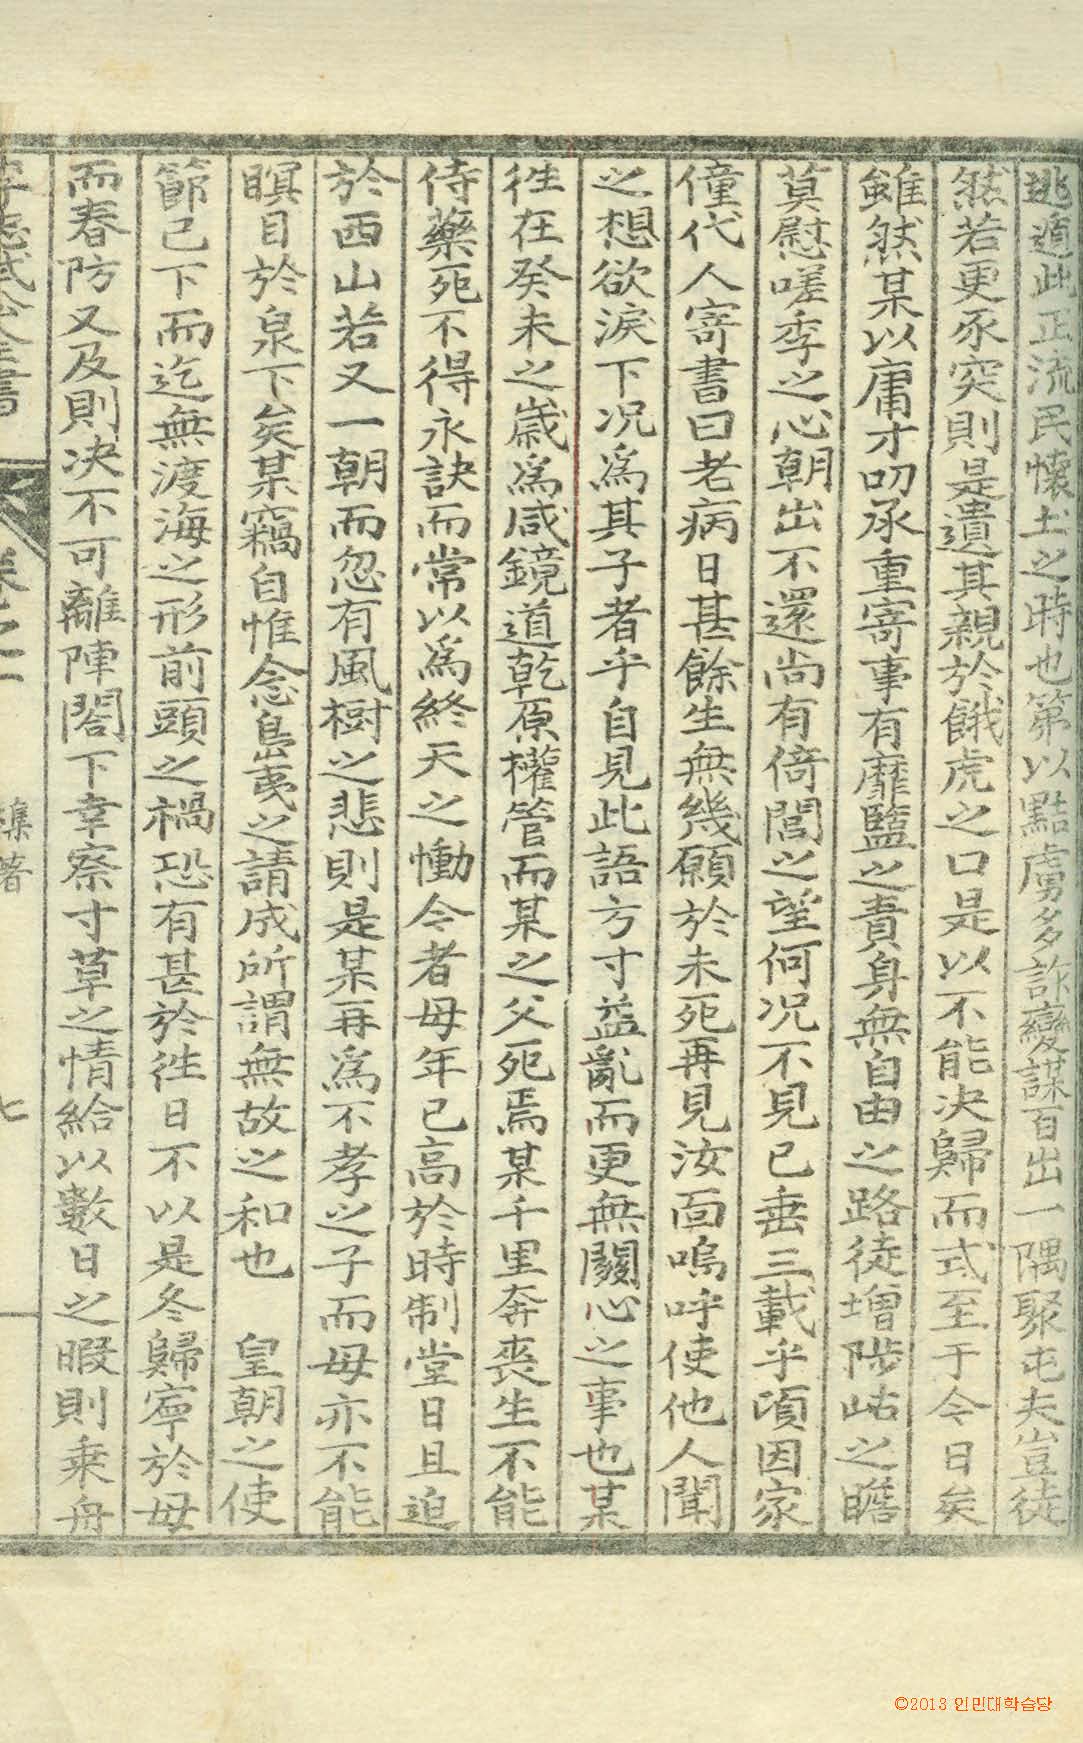 逃遁此正流民懷土之時也第以黠虜多詐變謀百出一隅聚屯夫豈徒
然若更豕突則是遺其親於餓虎之口是以不能决歸而式至于今日矣
雖然某以庸才叨承重寄事有靡盬之責身無自由之路徒增陟岵之瞻
莫慰嗟季之心朝出不還尚有倚閭之望何况不見已垂三載乎頃因家
僮代人寄書曰老病日甚餘生無幾願於未死再見汝面嗚呼使他人聞
之想欲淚下况爲其子者乎自見此語方寸益亂而更無關心之事也某
徃在癸未之歲爲咸鏡道乾原權管而某之父死焉某千里奔喪生不能
侍藥死不得永訣而常以爲終天之慟今者母年已高於時制堂日且迫
於西山若又一朝而忽有風樹之悲則是某再爲不孝之子而母亦不能
瞑目於泉下矣某竊自惟念島夷之請成所謂無故之和也 皇朝之使
節已下而迄無渡海之形前頭之禍恐有甚於徃日不以是冬歸寧於母
而春防又及則决不可離陣閤下幸察寸草之情給以數日之暇則乘舟
李忠武公全書 卷之一 襍著 七
©2013 인민대학습당